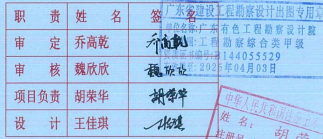 职 责 姓 名 签 名
审 定 乔高乾 乔高乾
审 核 魏欣欣 魏欣欣
项目负责 胡荣华 胡荣华
设 计 王佳琪
广东省建设工程勘察设计出图专用章
单位名称:广东有色工程勘察设计院
工程勘察综合类甲级
B144055529
2025年04月03日
中华人民共和国注册土木工程师
姓名:胡荣
注册号